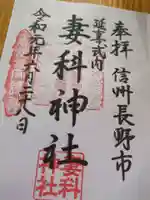 奉拝 信州長野市
延喜式内
妻科神社
令和七年六月二十八日
妻科
神社